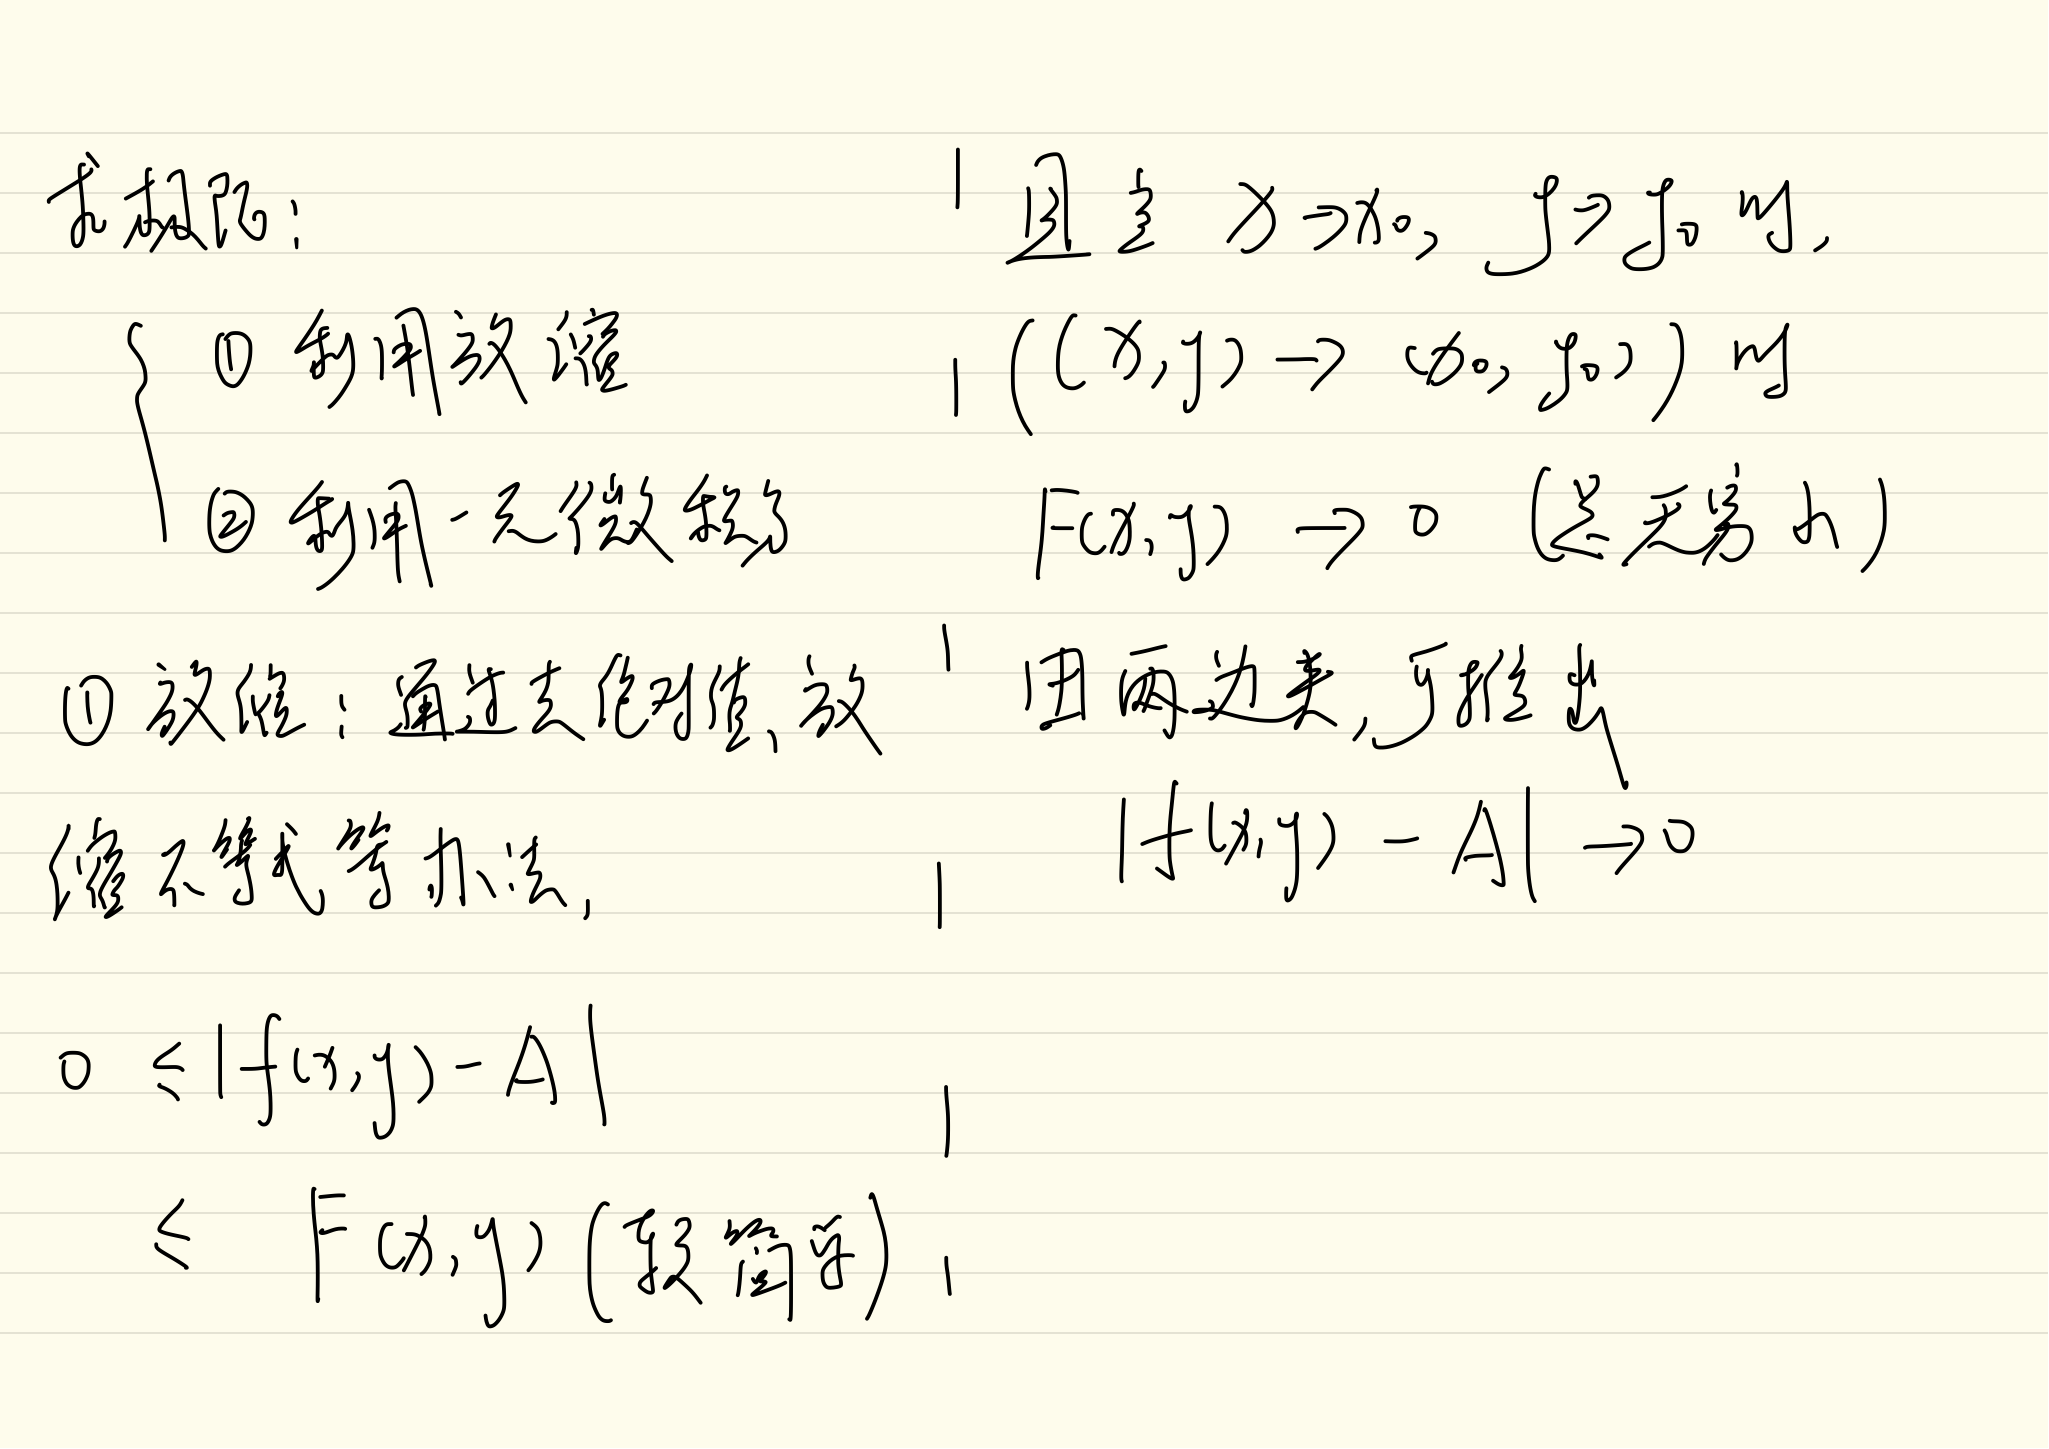 求极限:
① 利用放缩
② 利用一元微积分
① 放缩: 通过去绝对值、放
缩不等式等办法,
0 ≤ |f(x,y) - A|
≤ F(x,y) (较简单)
且当 x→x₀, y→y₀ 时,
((x,y) → (x₀, y₀)) 时
F(x,y) → 0 (是无穷小)
由两边夹,可推出
|f(x,y) - A| → 0